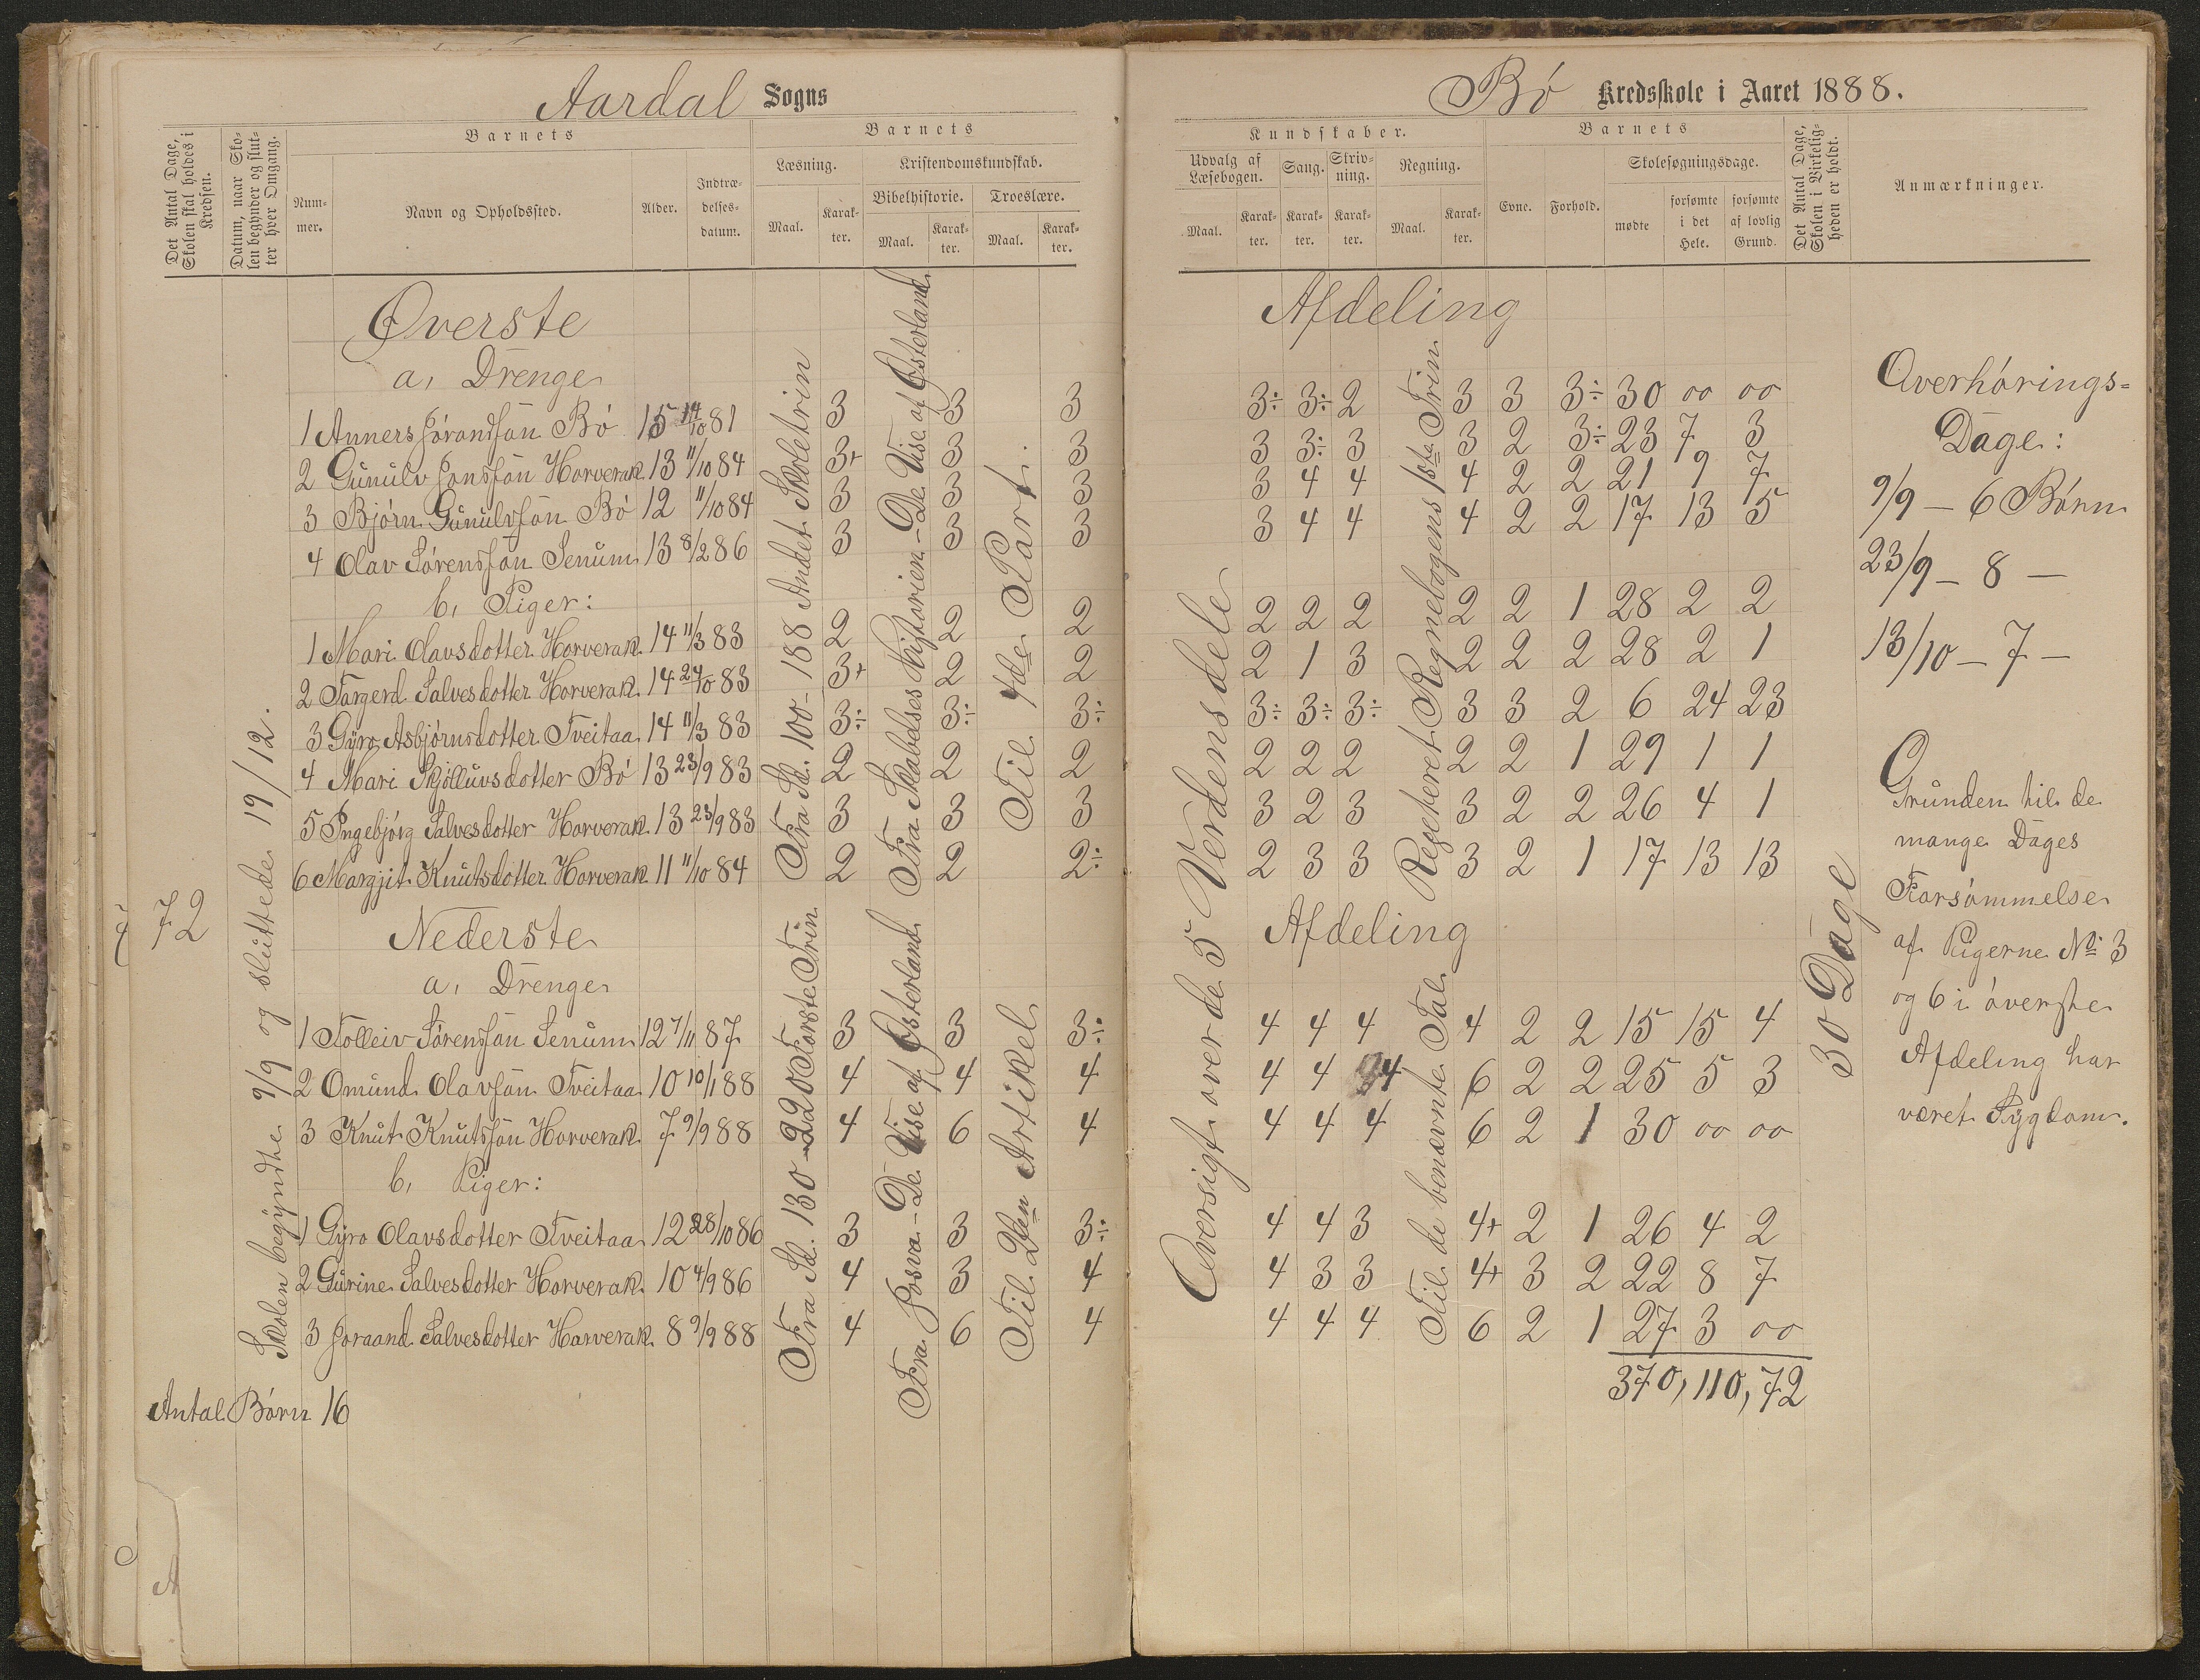 Aardal Sogns
Det Antal Dage, Skolen skal holdes i Kredsen.
Datum, naar Skolen begynder og slutter hver Omgang.
Barnets
Nummer.
Navn og Opholdssted.
Alder.
Indtrædelsesdatum.
Barnets
Læsning.
Kristendomskundskab.
Bibelhistorie.
Troeslære.
Maal.
Karakter.
Maal.
Karakter.
Maal.
Karakter.
72
Skolen begyndte 9/9 og sluttede 19/12.
Øverste
a, Drenge
1 Anners Jørandsøn Bø 15 14/10 81 3 3 3
2 Gunulv Jonssøn Horverak 13 11/10 84 3+ 3 3
3 Bjørn Gunulvsøn Bø 12 11/10 84 3 3 3
4 Olav Sørenssøn Senum 13 8/2 86 3 3 3
b, Piger:
1 Mari Olavsdotter Horverak 14 11/3 83 2 2 2
2 Targerd Salvesdotter Horverak 14 24/10 83 3+ 2 2
3 Gyro Asbjørnsdotter Tveitaa 14 11/3 83 3÷ 3÷ 3÷
4 Mari Skjølluvsdotter Bø 13 23/9 83 2 2 2
5 Ingebjørg Salvesdotter Horverak 13 23/9 83 3 3 3
6 Margjit Knutsdotter Horverak 11 11/10 84 2 2 2÷
Fra Sd. 100-188 Andet Skoletrin
Fra Skabelses Historien - De Vise af Østerland
Til 4de Part.
Nederste
a, Drenge
1 Tolleiv Sørenssøn Senum 12 7/11 87 3 3 3÷
2 Omund Olavsøn Tveitaa 10 10/1 88 4 4 4
3 Knut Knutssøn Horverak 7 9/9 88 4 6 4
b, Piger:
1 Gyro Olavsdotter Tveitaa 12 28/10 86 3 3 3÷
2 Gurine Salvesdotter Horverak 10 4/9 86 4 3 4
3 Joraand Salvesdotter Horverak 8 9/9 88 4 6 4
Fra Sd. 130-220 Første Trin
Fra Josva - De Vise af Østerland
Til 2den Artikel
Antal Børn 16
Bø Kredsskole i Aaret 1888.
Kundskaber.
Udvalg af Læsebogen.
Sang.
Skrivning.
Regning.
Maal.
Karakter.
Karakter.
Karakter.
Maal.
Karakter.
Barnets
Evne.
Forhold.
Skolesøgningsdage.
mødte
forsømte i det Hele.
forsømte af lovlig Grund.
Det Antal Dage, Skolen i Virkeligheden er holdt.
Anmærkninger.
Afdeling
3÷ 3÷ 2 3 3 3÷ 30 00 00
3 3÷ 3 3 2 3÷ 23 7 3
3 4 4 4 2 2 21 9 7
3 4 4 4 2 2 17 13 5
2 2 2 2 2 1 28 2 2
2 1 3 2 2 2 28 2 1
3÷ 3÷ 3÷ 3 3 2 6 24 23
2 2 2 2 2 1 29 1 1
3 2 3 3 2 2 26 4 1
2 3 3 3 2 1 17 13 13
Oversigt over de 5 Verdensdele
Repeteret Regnebogens 1ste Trin
Afdeling
4 4 4 4 2 2 15 15 4
4 4 4 6 2 2 25 5 3
4 4 4 6 2 1 30 00 00
4 4 3 4+ 2 1 26 4 2
4 3 3 4+ 3 2 22 8 7
4 4 4 6 2 1 27 3 00
370, 110, 72
Til de benævnte Tal
30 Dage
Overhørings-
Dage:
9/9 - 6 Børn
23/9 - 8 -
13/10 - 7 -
Grunden til de
mange Dages
Forsømmelse
af Pigerne No 3
og 6 i øverste
Afdeling har
været Sygdom.